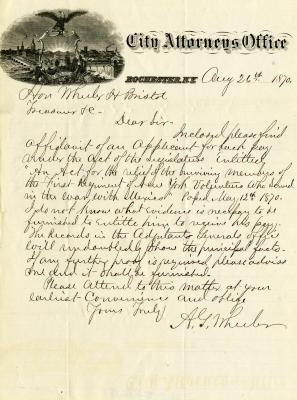 City Attorneys Office
ROCHESTER, N.Y. Aug 26th 1870.
Hon Wheeler H Bristol
Treasurer &c
Dear Sir-
Inclosed please find
affidavit of an Applicant for back pay
under the Act of the Legislature Entitled
"An Act for the relief of the surviving members of
the first Regiment of New York Volunteers who served
in the War with Mexico" Passed May 12th 1870.
I do not know what evidence is necessary to be
furnished to entitle him to receive his pay.
The Records in the Adjutant Generals Office
will undoubtedly show the principal facts.
If any further proof is required please advise
me and it shall be furnished.
Please Attend to this matter at your
earliest Convenience and oblige
Yours Truly
A. G. Wheeler
City Attorneys Office